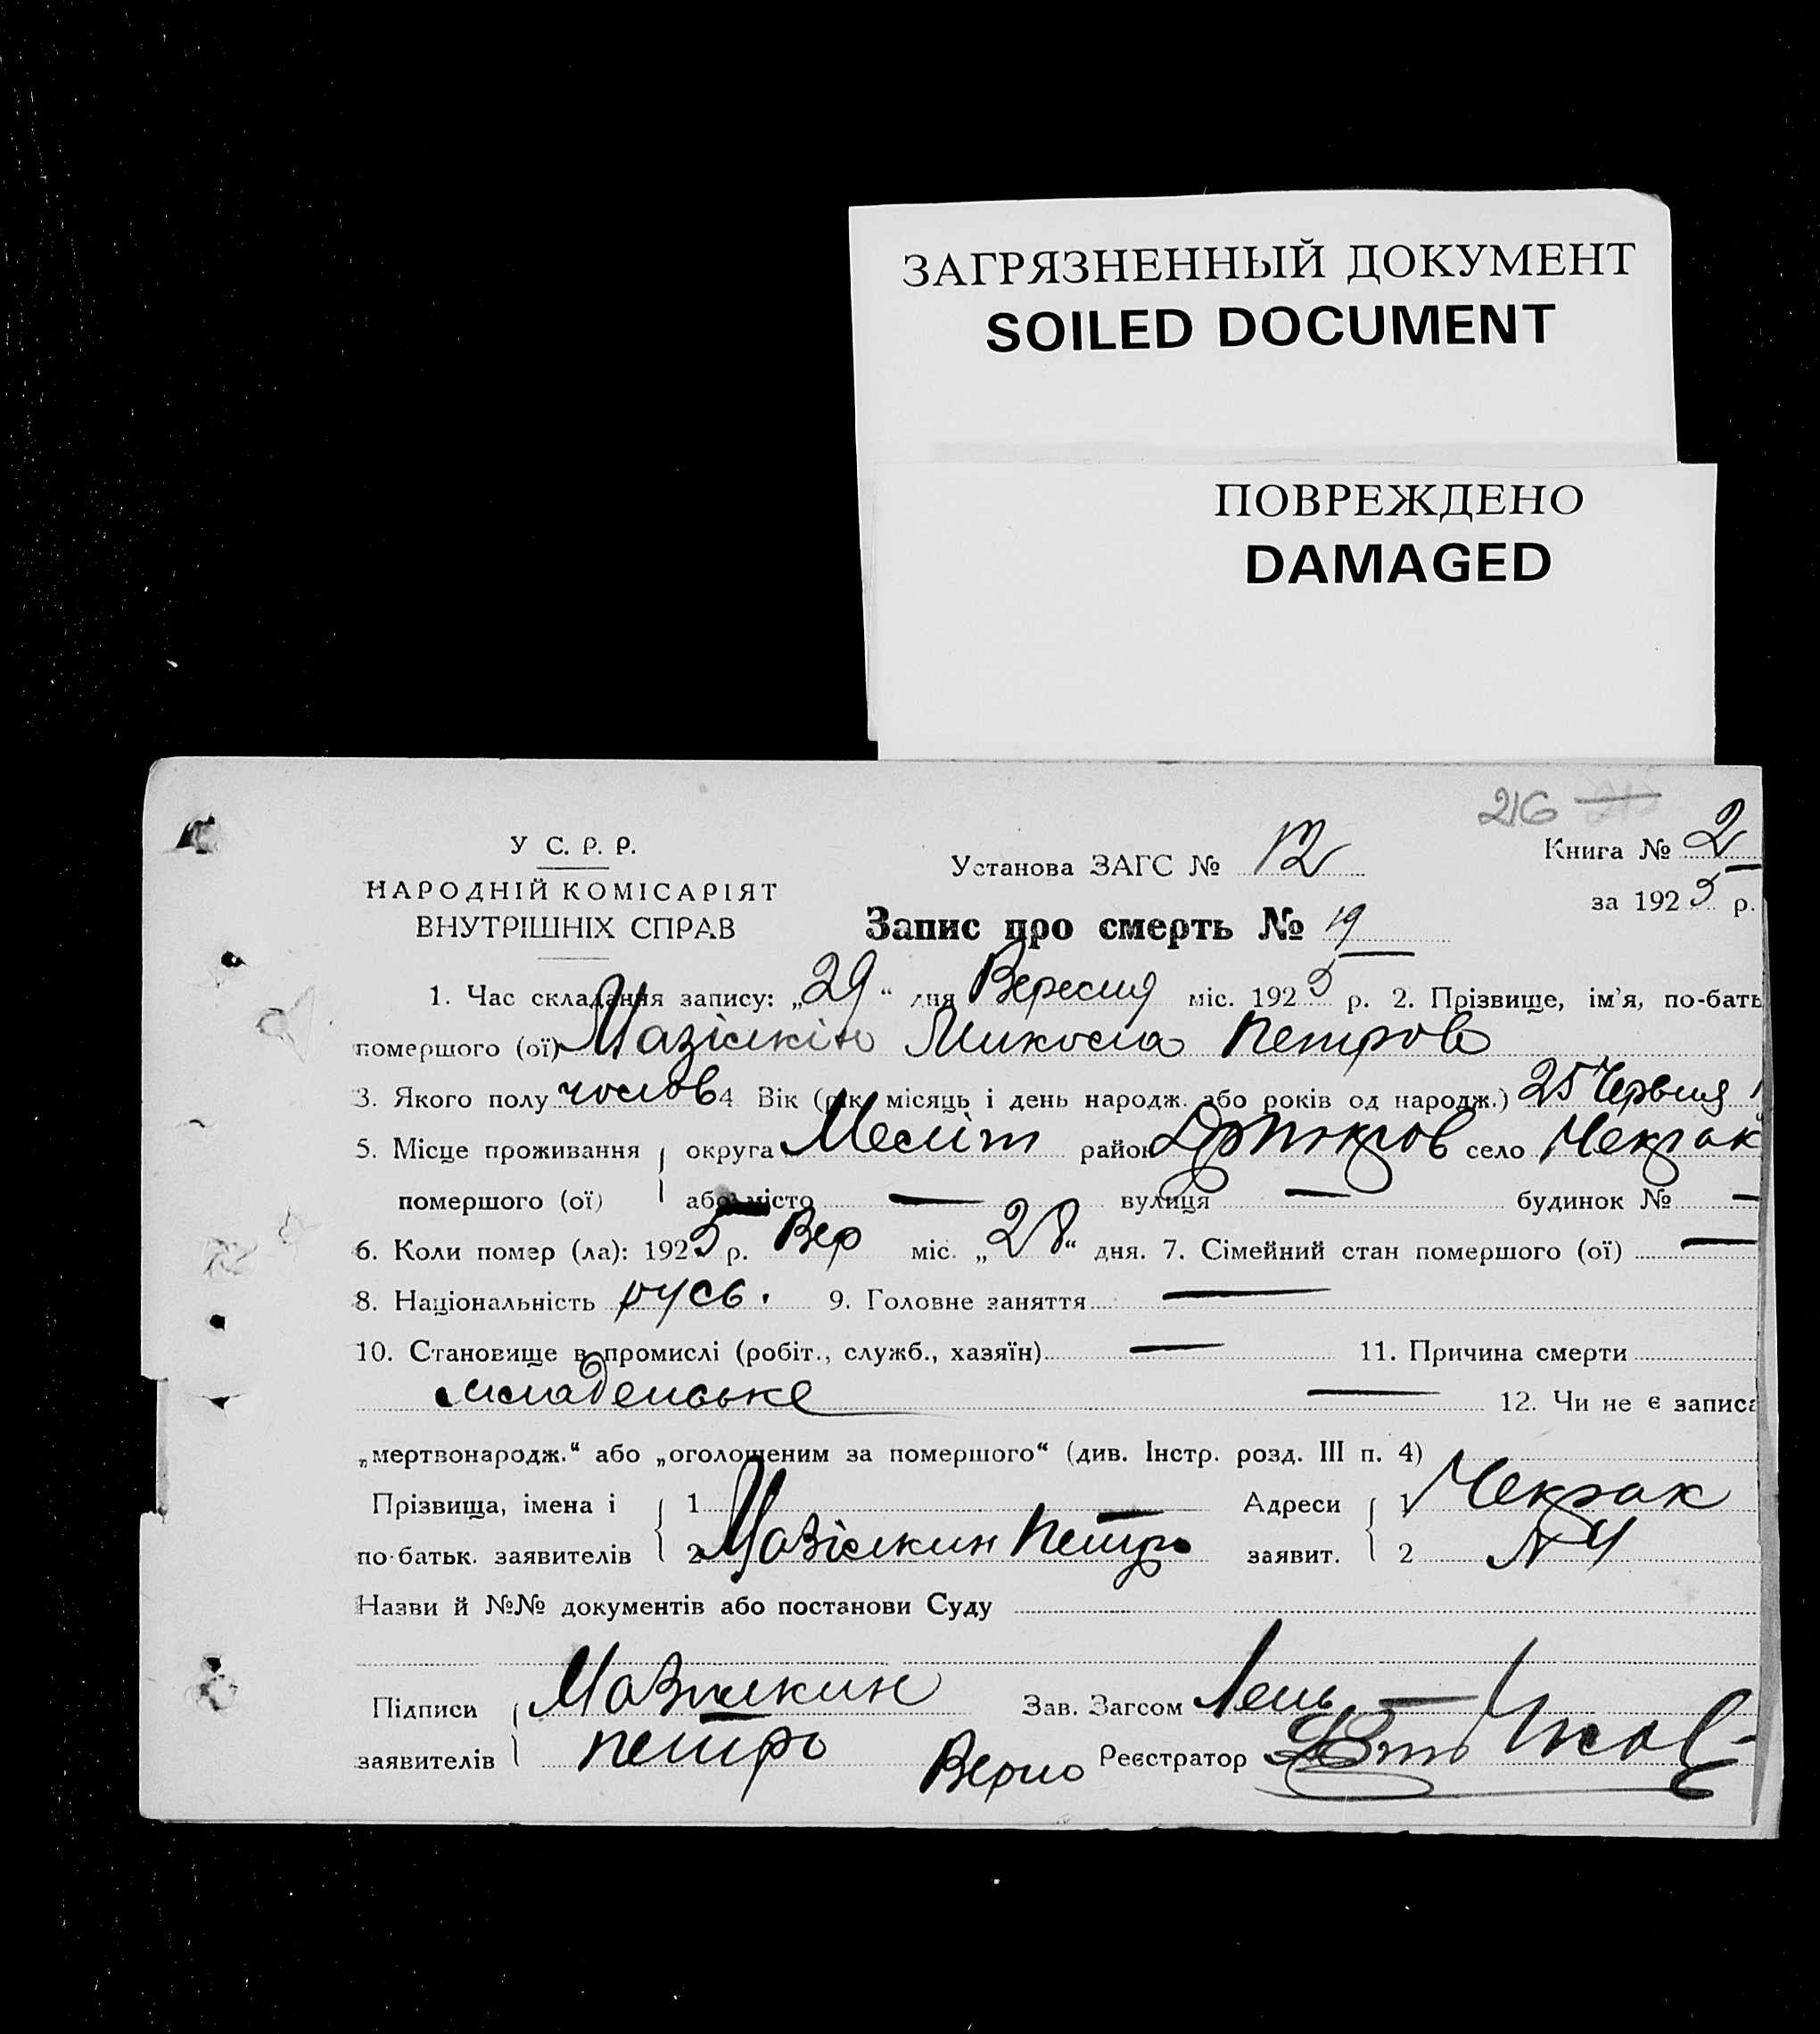 ЗАГРЯЗНЕННЫЙ ДОКУМЕНТ
SOILED DOCUMENT
ПОВРЕЖДЕНО
DAMAGED
216
У С. Р. Р.
НАРОДНІЙ КОМІСАРІЯТ
ВНУТРІШНІХ СПРАВ
Установа ЗАГС № 12
Книга № 2
за 1925 р.
Запис про смерть № 19
1. Час складання запису: „29“ дня Вересня міс. 1925 р. 2. Прізвище, ім'я, по-бать
помершого (ої) Мазілкін Микола Петров
3. Якого полу чолов 4 Вік (рік, місяць і день народж. або років од народж.) 25 Червня 1
5. Місце проживання округа Меліт район село Чекрак
помершого (ої) або місто — вулиця — будинок № —
6. Коли помер (ла): 1925 р. Вер міс. „28“ дня. 7. Сімейний стан помершого (ої) —
8. Національність русь. 9. Головне заняття —
10. Становище в промислі (робіт., служб., хазяїн) — 11. Причина смерти
младенське — 12. Чи не є записа
„мертвонародж.“ або „оголошеним за помершого“ (див. Інстр. розд. III п. 4)
Прізвища, імена і 1 — Адреси 1 Чекрак
по-батьк. заявителів 2 Мазілкин Петро заявит. 2 № 4
Назви й №№ документів або постанови Суду
Підписи Мазилкин Зав. Загсом
заявителів Петро Верно Реєстратор